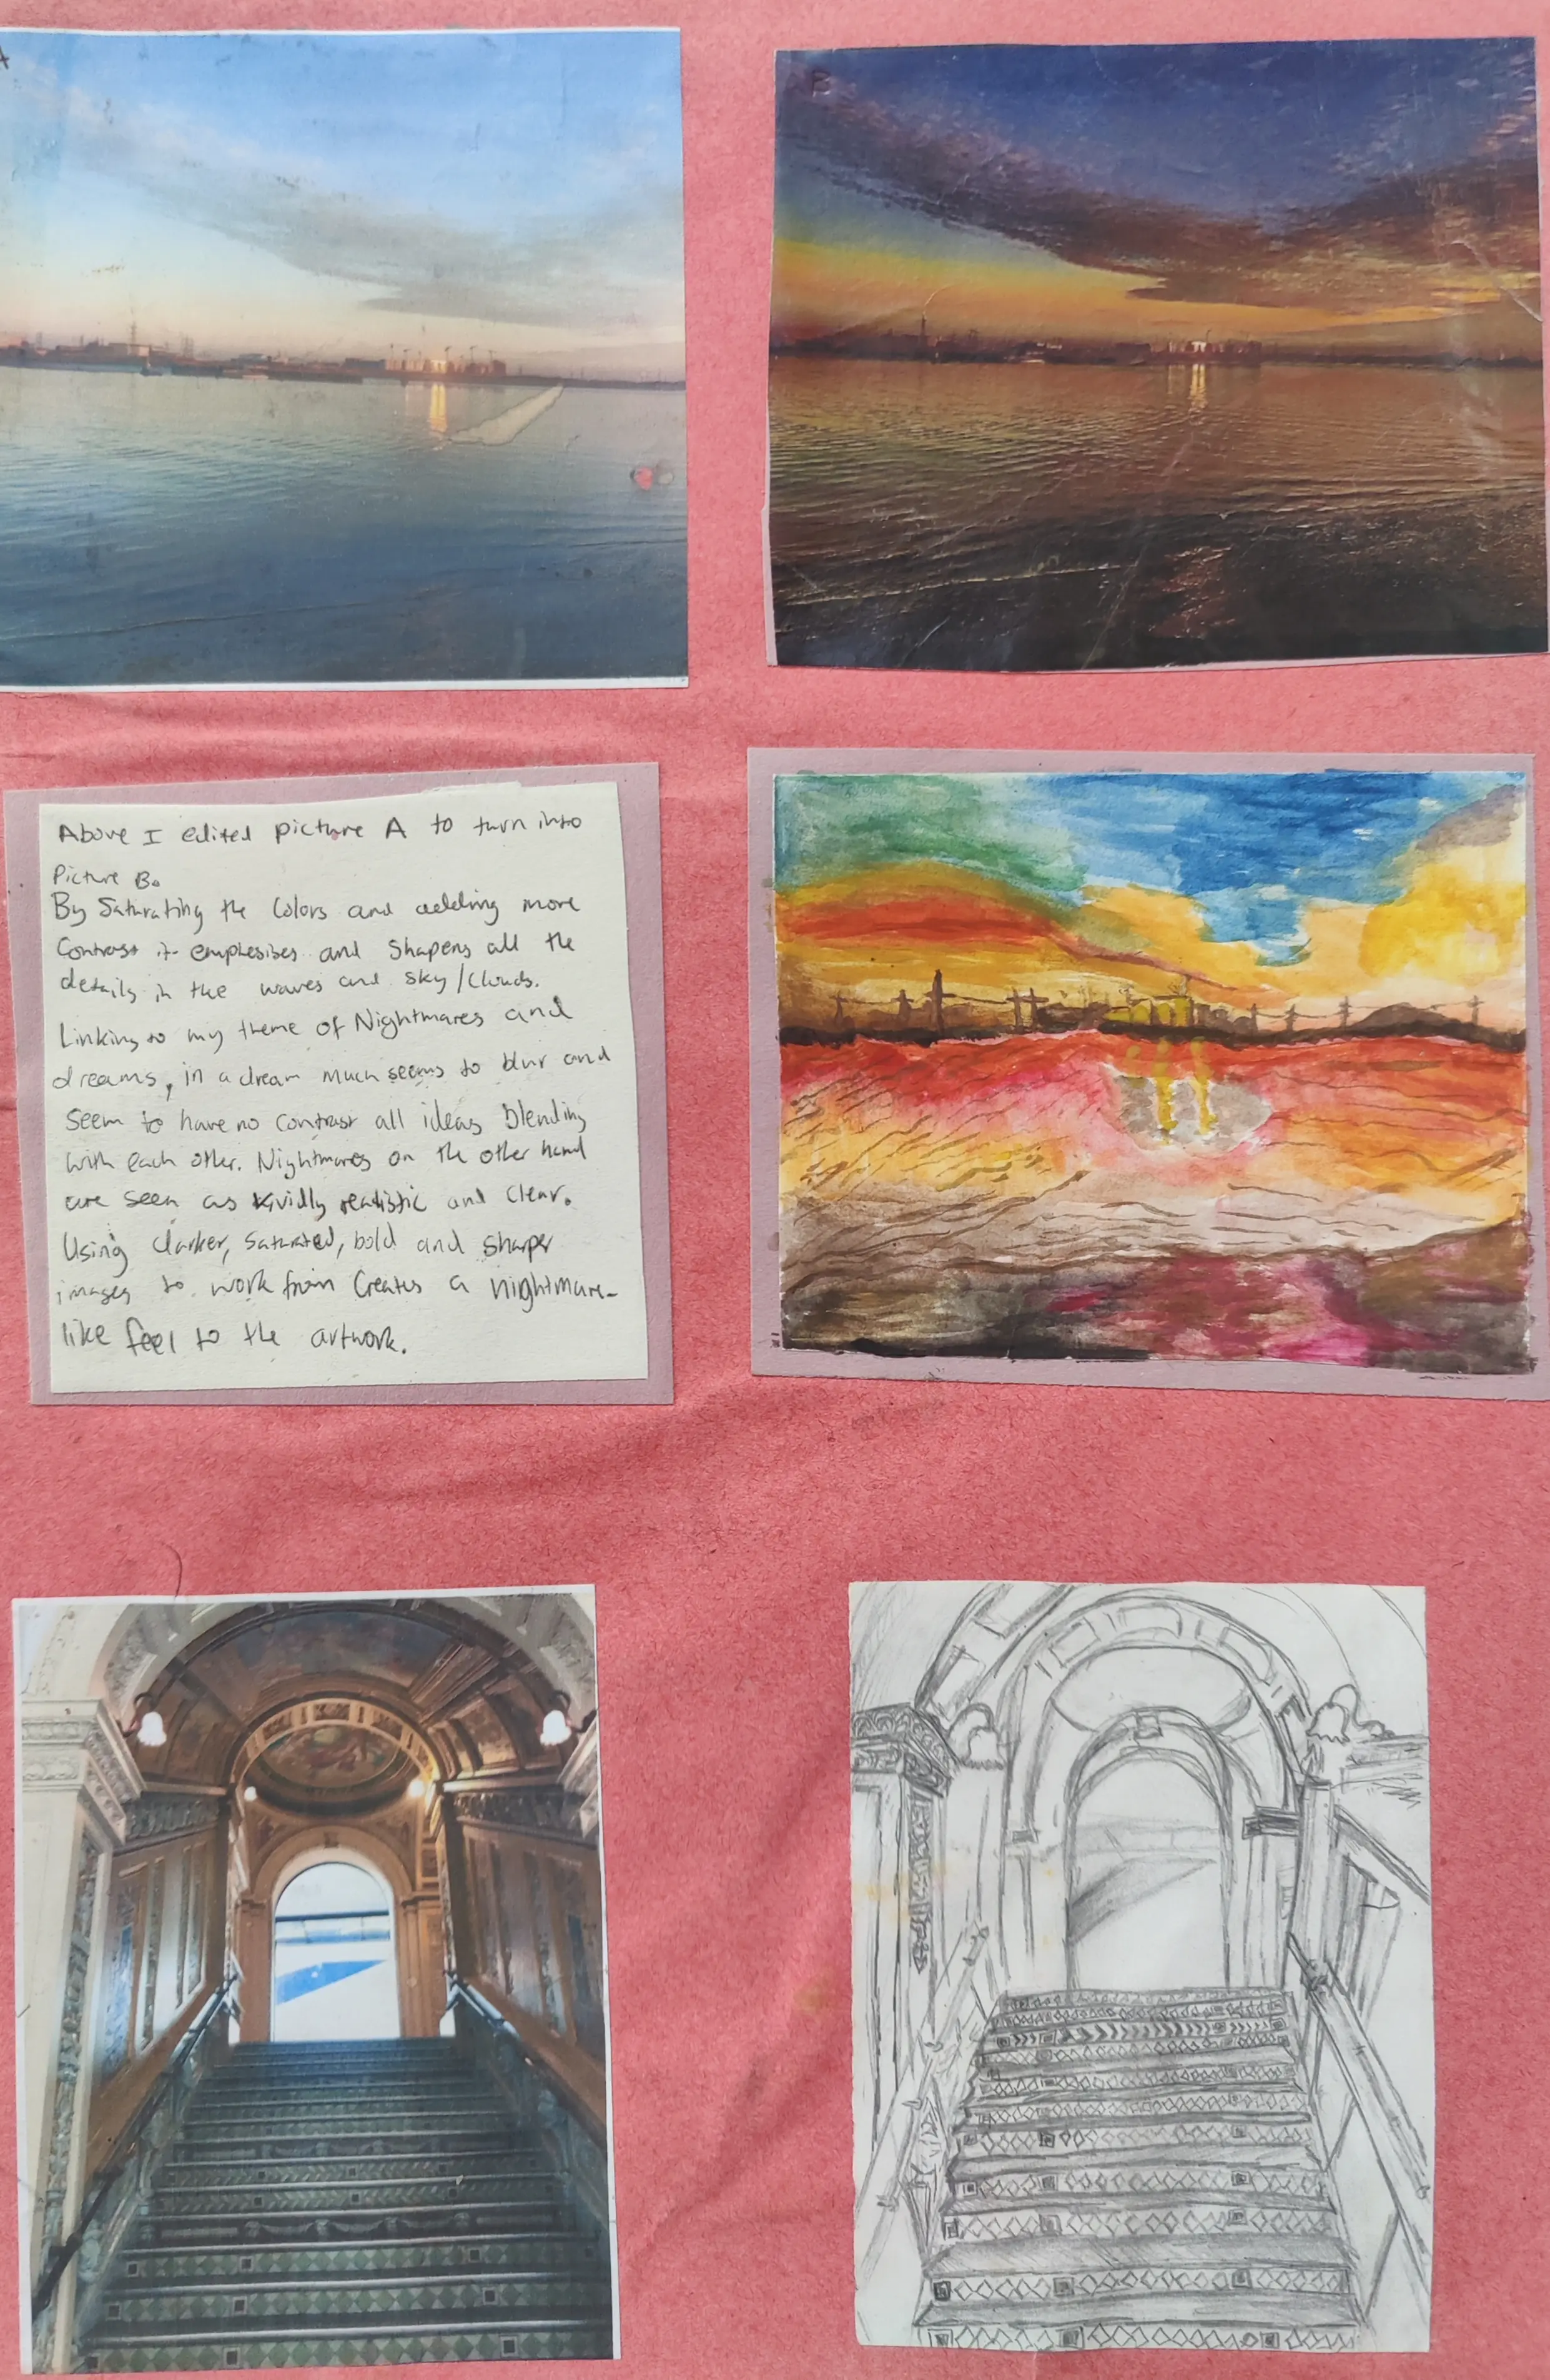 A
B
Above I edited picture A to turn into
Picture B.
By Saturating the Colors and adding more
Contrast it emphesises and Shapens all the
details in the waves and sky/Clouds.
Linking to my theme of Nightmares and
dreams, in a dream much seems to blur and
seem to have no contrast all ideas blending
with each other. Nightmares on the other hand
are seen as vividly realistic and clear.
Using darker, saturated, bold and sharper
images to work from Creates a nightmare-
like feel to the artwork.